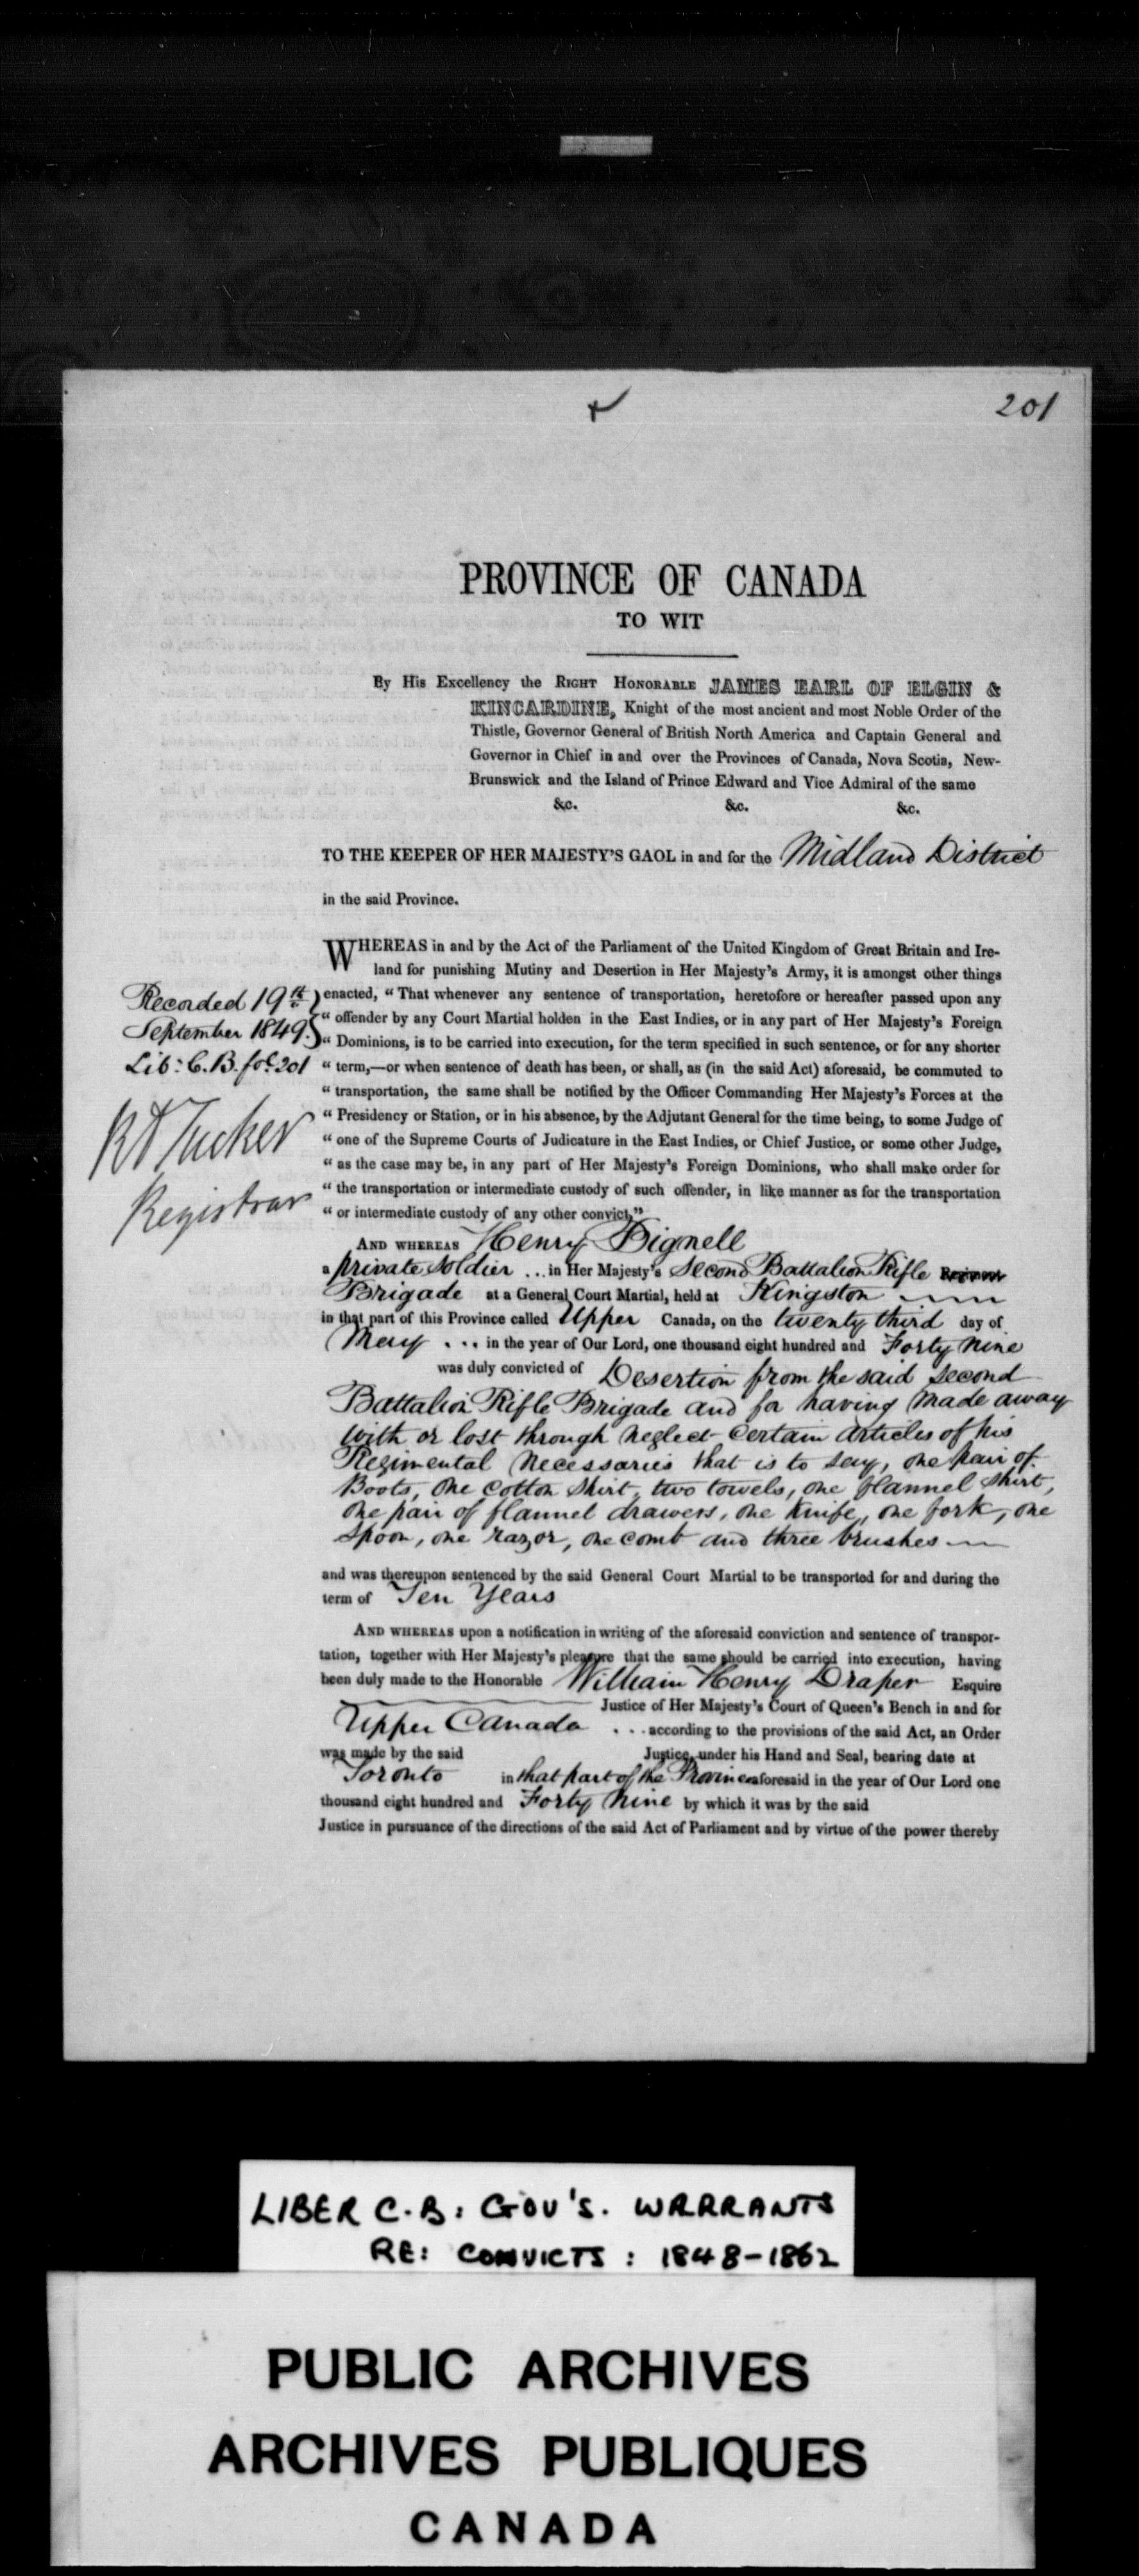 201
PROVINCE OF CANADA
TO WIT
By His Excellency the RIGHT HONORABLE JAMES EARL OF ELGIN &
KINCARDINE, Knight of the most ancient and most Noble Order of the
Thistle, Governor General of British North America and Captain General and
Governor in Chief in and over the Provinces of Canada, Nova Scotia, New-
Brunswick and the Island of Prince Edward and Vice Admiral of the same
&c. &c. &c.
TO THE KEEPER OF HER MAJESTY'S GAOL in and for the Midland District
in the said Province.
WHEREAS in and by the Act of the Parliament of the United Kingdom of Great Britain and Ire-
land for punishing Mutiny and Desertion in Her Majesty's Army, it is amongst other things
enacted, “ That whenever any sentence of transportation, heretofore or hereafter passed upon any
“ offender by any Court Martial holden in the East Indies, or in any part of Her Majesty's Foreign
“ Dominions, is to be carried into execution, for the term specified in such sentence, or for any shorter
“ term,—or when sentence of death has been, or shall, as (in the said Act) aforesaid, be commuted to
“ transportation, the same shall be notified by the Officer Commanding Her Majesty's Forces at the
“ Presidency or Station, or in his absence, by the Adjutant General for the time being, to some Judge of
“ one of the Supreme Courts of Judicature in the East Indies, or Chief Justice, or some other Judge,
“ as the case may be, in any part of Her Majesty's Foreign Dominions, who shall make order for
“ the transportation or intermediate custody of such offender, in like manner as for the transportation
“ or intermediate custody of any other convict,”
Recorded 19th
September 1849.
Lib: C.B. fol. 201
R A Tucker
Registrar
AND WHEREAS Henry Bignell
a private Soldier ... in Her Majesty's Second Battalion Rifle Regiment
Brigade at a General Court Martial, held at Kingston
in that part of this Province called Upper Canada, on the twenty third day of
May ... in the year of Our Lord, one thousand eight hundred and Forty Nine
was duly convicted of Desertion from the said Second
Battalion Rifle Brigade and for having made away
with or lost through neglect certain articles of his
Regimental Necessaries that is to say, one pair of
Boots, One Cotton Shirt, two towels, one flannel shirt,
One pair of flannel drawers, one Knife, one fork, one
Spoon, one razor, one comb and three brushes
and was thereupon sentenced by the said General Court Martial to be transported for and during the
term of Ten Years
AND WHEREAS upon a notification in writing of the aforesaid conviction and sentence of transpor-
tation, together with Her Majesty's pleasure that the same should be carried into execution, having
been duly made to the Honorable William Henry Draper Esquire
Justice of Her Majesty's Court of Queen's Bench in and for
Upper Canada ... according to the provisions of the said Act, an Order
was made by the said Justice, under his Hand and Seal, bearing date at
Toronto in that part of the Province aforesaid in the year of Our Lord one
thousand eight hundred and Forty Nine by which it was by the said
Justice in pursuance of the directions of the said Act of Parliament and by virtue of the power thereby
LIBER C.B: GOV'S. WARRANTS
RE: CONVICTS: 1848-1862
PUBLIC ARCHIVES
ARCHIVES PUBLIQUES
CANADA